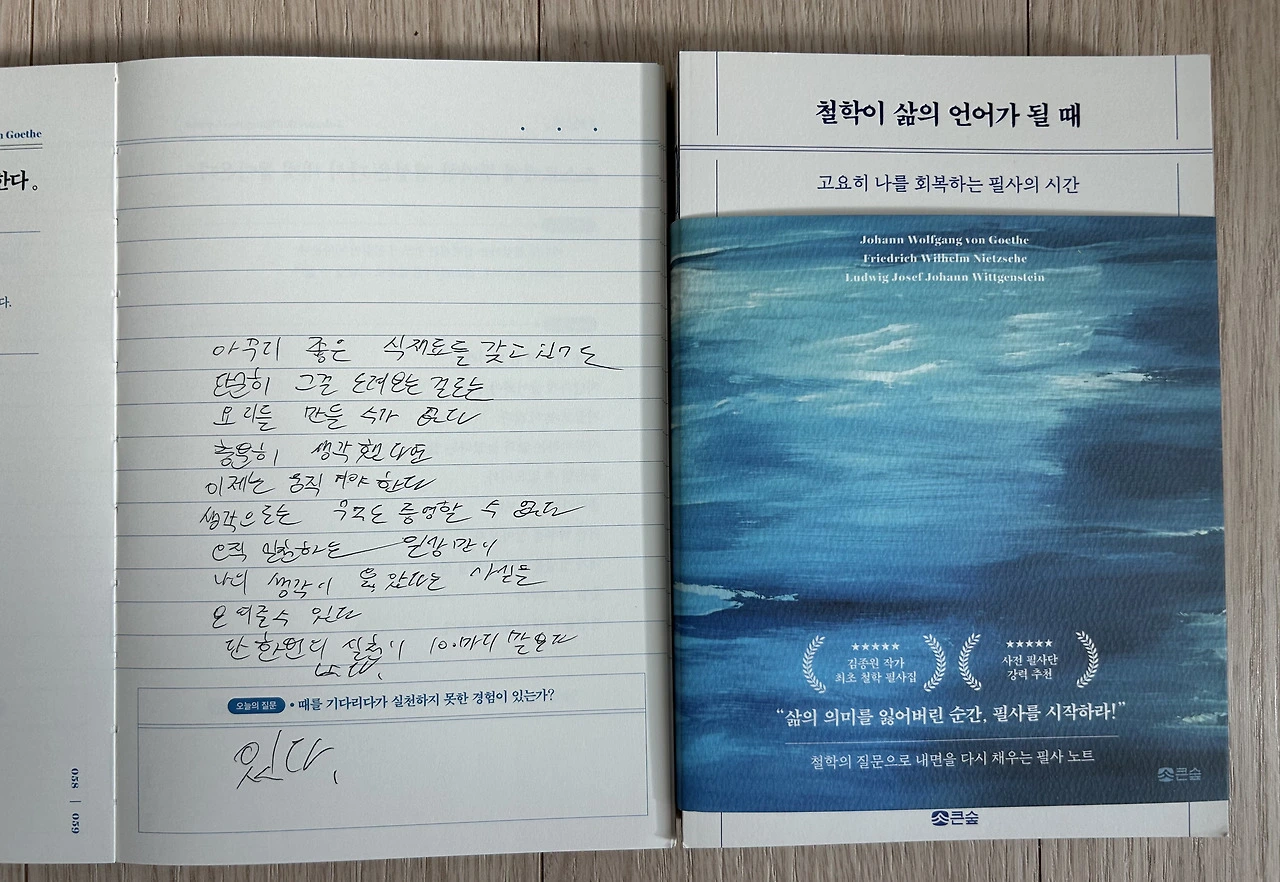 n Goethe
한다。
다.
아무리 좋은 식재료를 갖고 있기도
단순히 그걸 노려보는 걸로는
요리를 만들 수가 없다
충분히 생각했다면
이제는 움직여야 한다
생각으로는 무엇도 증명할 수 없다
오직 실천하는 일상만이
나의 생각이 옳았다는 사실을
보여줄 수 있다
단 한번의 실천이 10마디 말보다
낫다.
오늘의 질문 • 때를 기다리다가 실천하지 못한 경험이 있는가?
있다.
058 | 059
철학이 삶의 언어가 될 때
고요히 나를 회복하는 필사의 시간
Johann Wolfgang von Goethe
Friedrich Wilhelm Nietzsche
Ludwig Josef Johann Wittgenstein
★★★★★
김종원 작가
최초 철학 필사집
★★★★★
사전 필사단
강력 추천
“삶의 의미를 잃어버린 순간, 필사를 시작하라!”
철학의 질문으로 내면을 다시 채우는 필사 노트
큰숲
큰숲